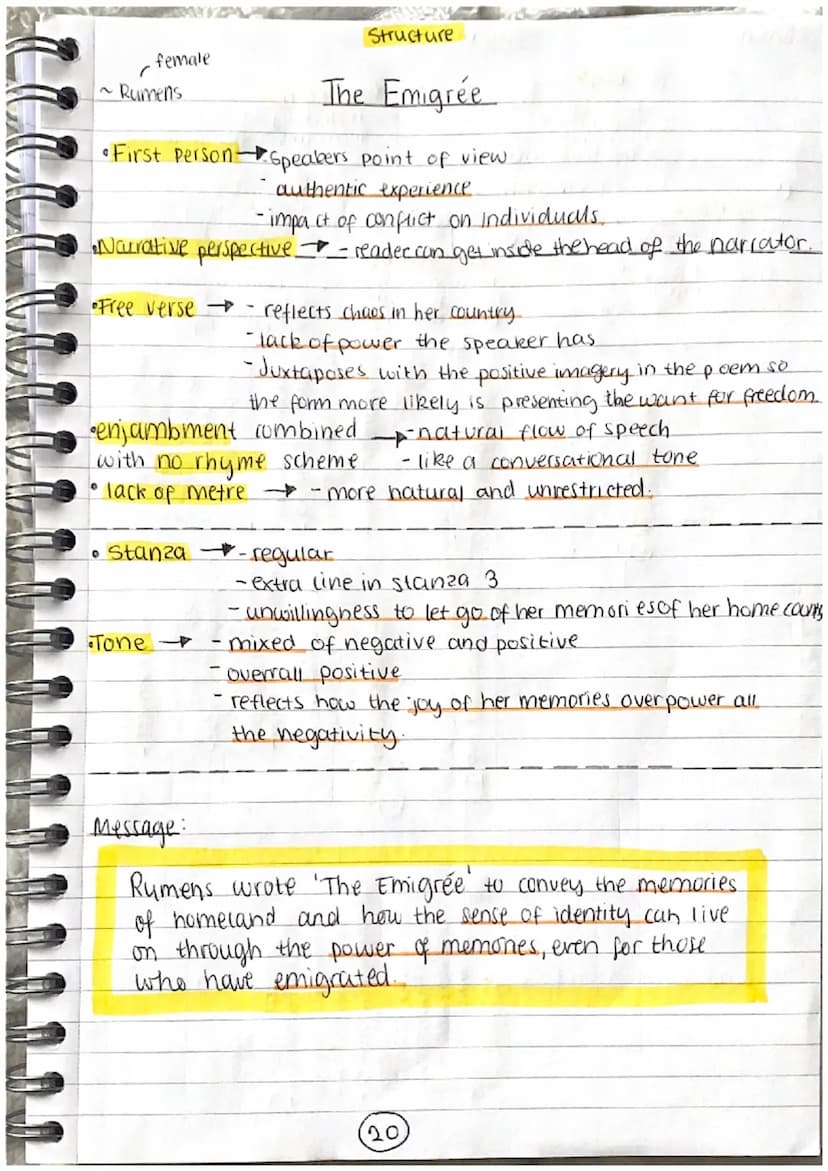 Structure
female
~ Rumens
The Emigrée
• First person → - Speakers point of view
- authentic experience
- impact of conflict on individuals
• Narrative perspective → - reader can get inside the head of the narrator.
• Free verse → - reflects chaos in her country
- lack of power the speaker has
- Juxtaposes with the positive imagery in the poem so
the form more likely is presenting the want for freedom
• enjambment combined → - natural flow of speech
with no rhyme scheme - like a conversational tone
• lack of metre → - more natural and unrestricted.
• Stanza → - regular
- extra line in stanza 3
- unwillingness to let go of her memories of her home
• Tone → - mixed of negative and positive
- overrall positive
- reflects how the joy of her memories overpower all
the negativity.
Message:
Rumens wrote 'The Emigrée' to convey the memories
of homeland and how the sense of identity can live
on through the power of memories, even for those
who have emigrated.
20